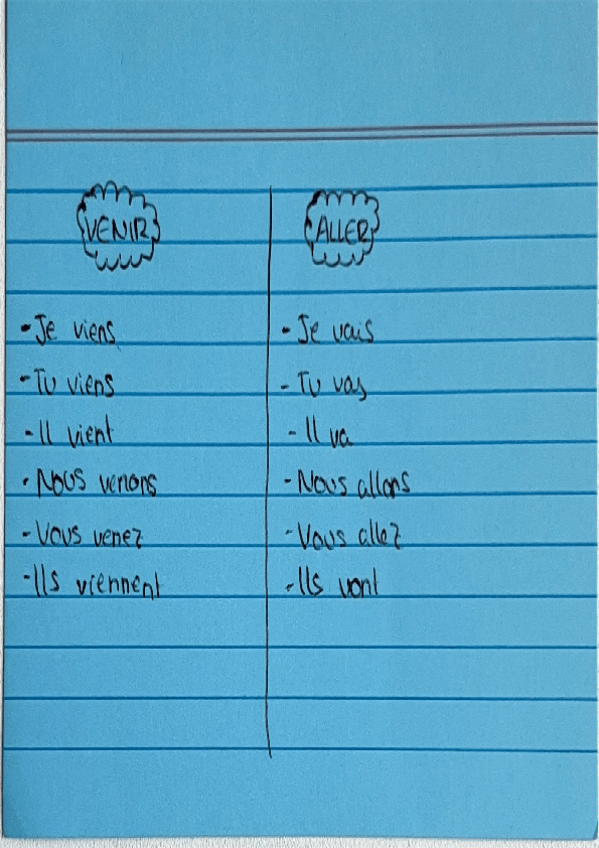 VENIR
- Je viens
- Tu viens
- Il vient
- Nous venons
- Vous venez
- Ils viennent
ALLER
- Je vais
- Tu vas
- Il va
- Nous allons
- Vous allez
- Ils vont